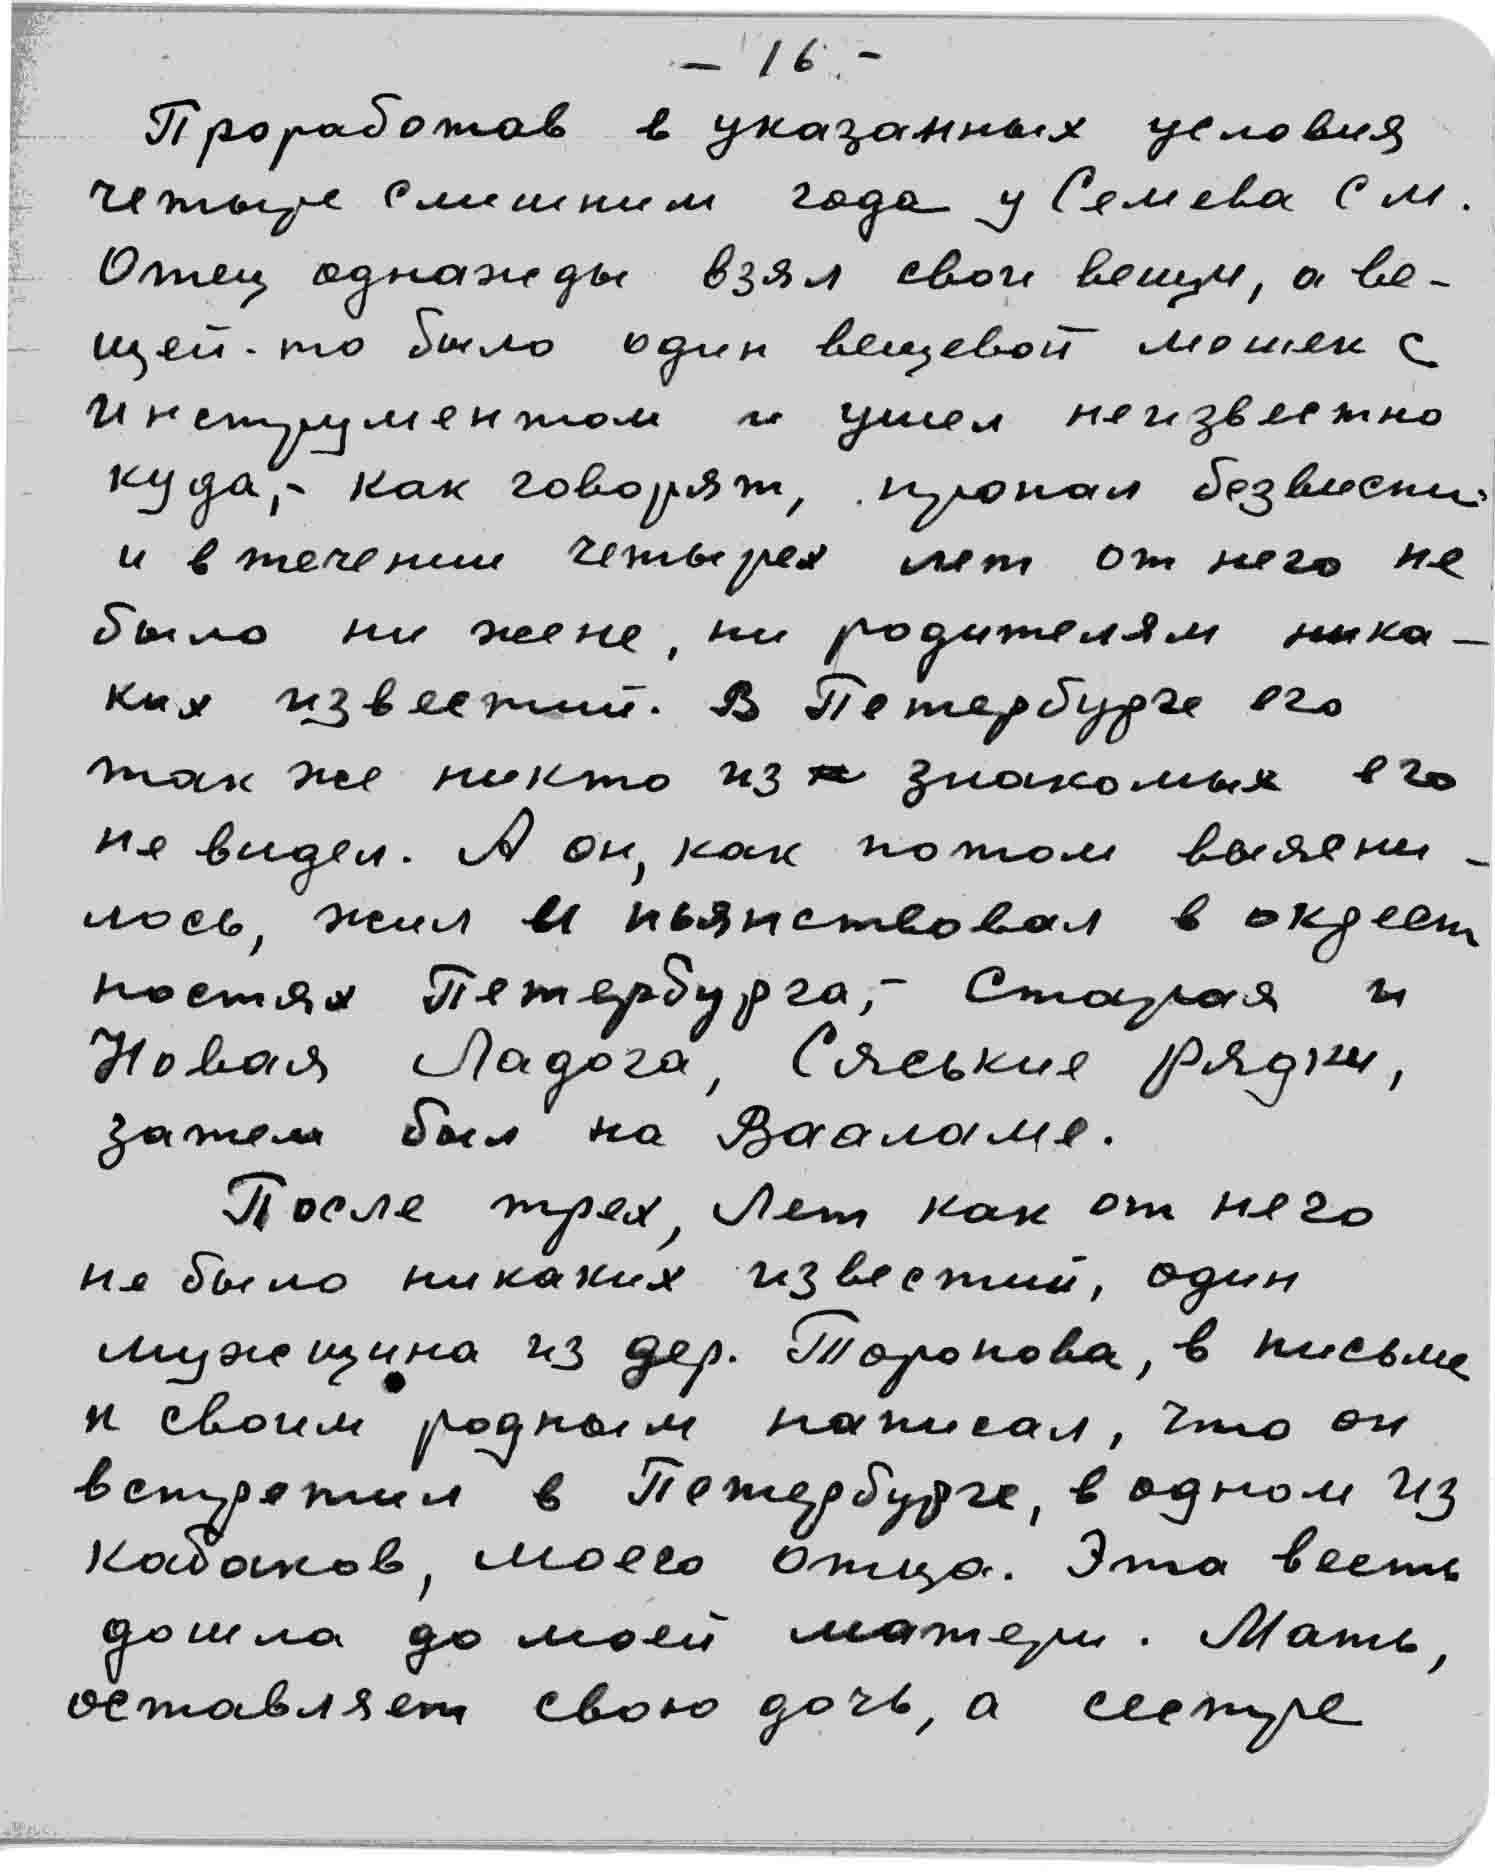 - 16 -
Проработав в указанных условия
четыре слишним года у Семева С М.
Отец однажды взял свои вещи, а ве-
щей-то было один вещевой мешек с
инструментом и ушел неизвестно
куда,- как говорят, пропал безвисти
и в течении четырех лет от него не
было ни жене, ни родителям ника-
ких известий. В Петербурге его
так же никто из знакомых его
не видел. А он, как потом выясни-
лось, жил и пьянствовал в окрест
ностях Петербурга,- Старая и
Новая Ладога, Сяськие Рядки,
затем был на Вааламе.
После трех, лет как от него
не было никаких известий, один
мужещина из дер. Торопова, в письме
к своим родным написал, что он
встретил в Петербурге, в одном из
кабаков, моего отца. Эта весть
дошла до моей матери. Мать,
оставляет свою дочь, а сестре